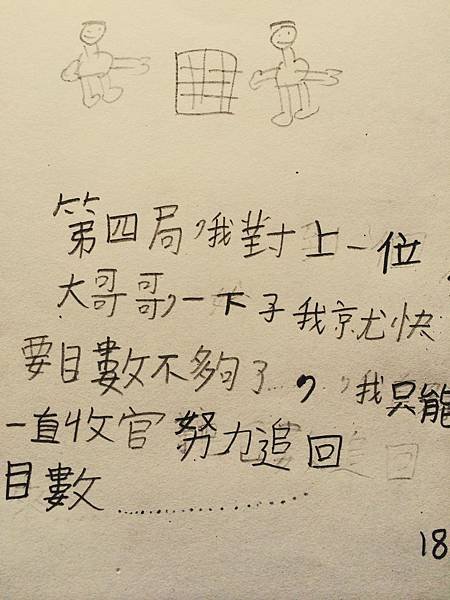 第四局,我對上一位
大哥哥,一下子我就快
要目數不夠了,,我只能
一直收官努力追回
目數..............
18